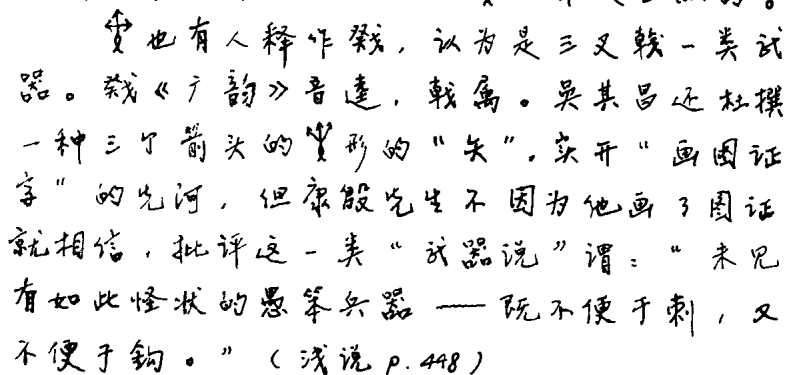 也有人释作戣，认为是三叉戟一类武
器。戣《广韵》音逵，戟属。吴其昌还杜撰
一种三个箭头的形的“矢”。实开“画图证
字”的先河，但康殷先生不因为他画了图证
就相信，批评这一类“武器说”谓：“未见
有如此怪状的愚笨兵器——既不便于刺，又
不便于钩。”（浅说 p.448）